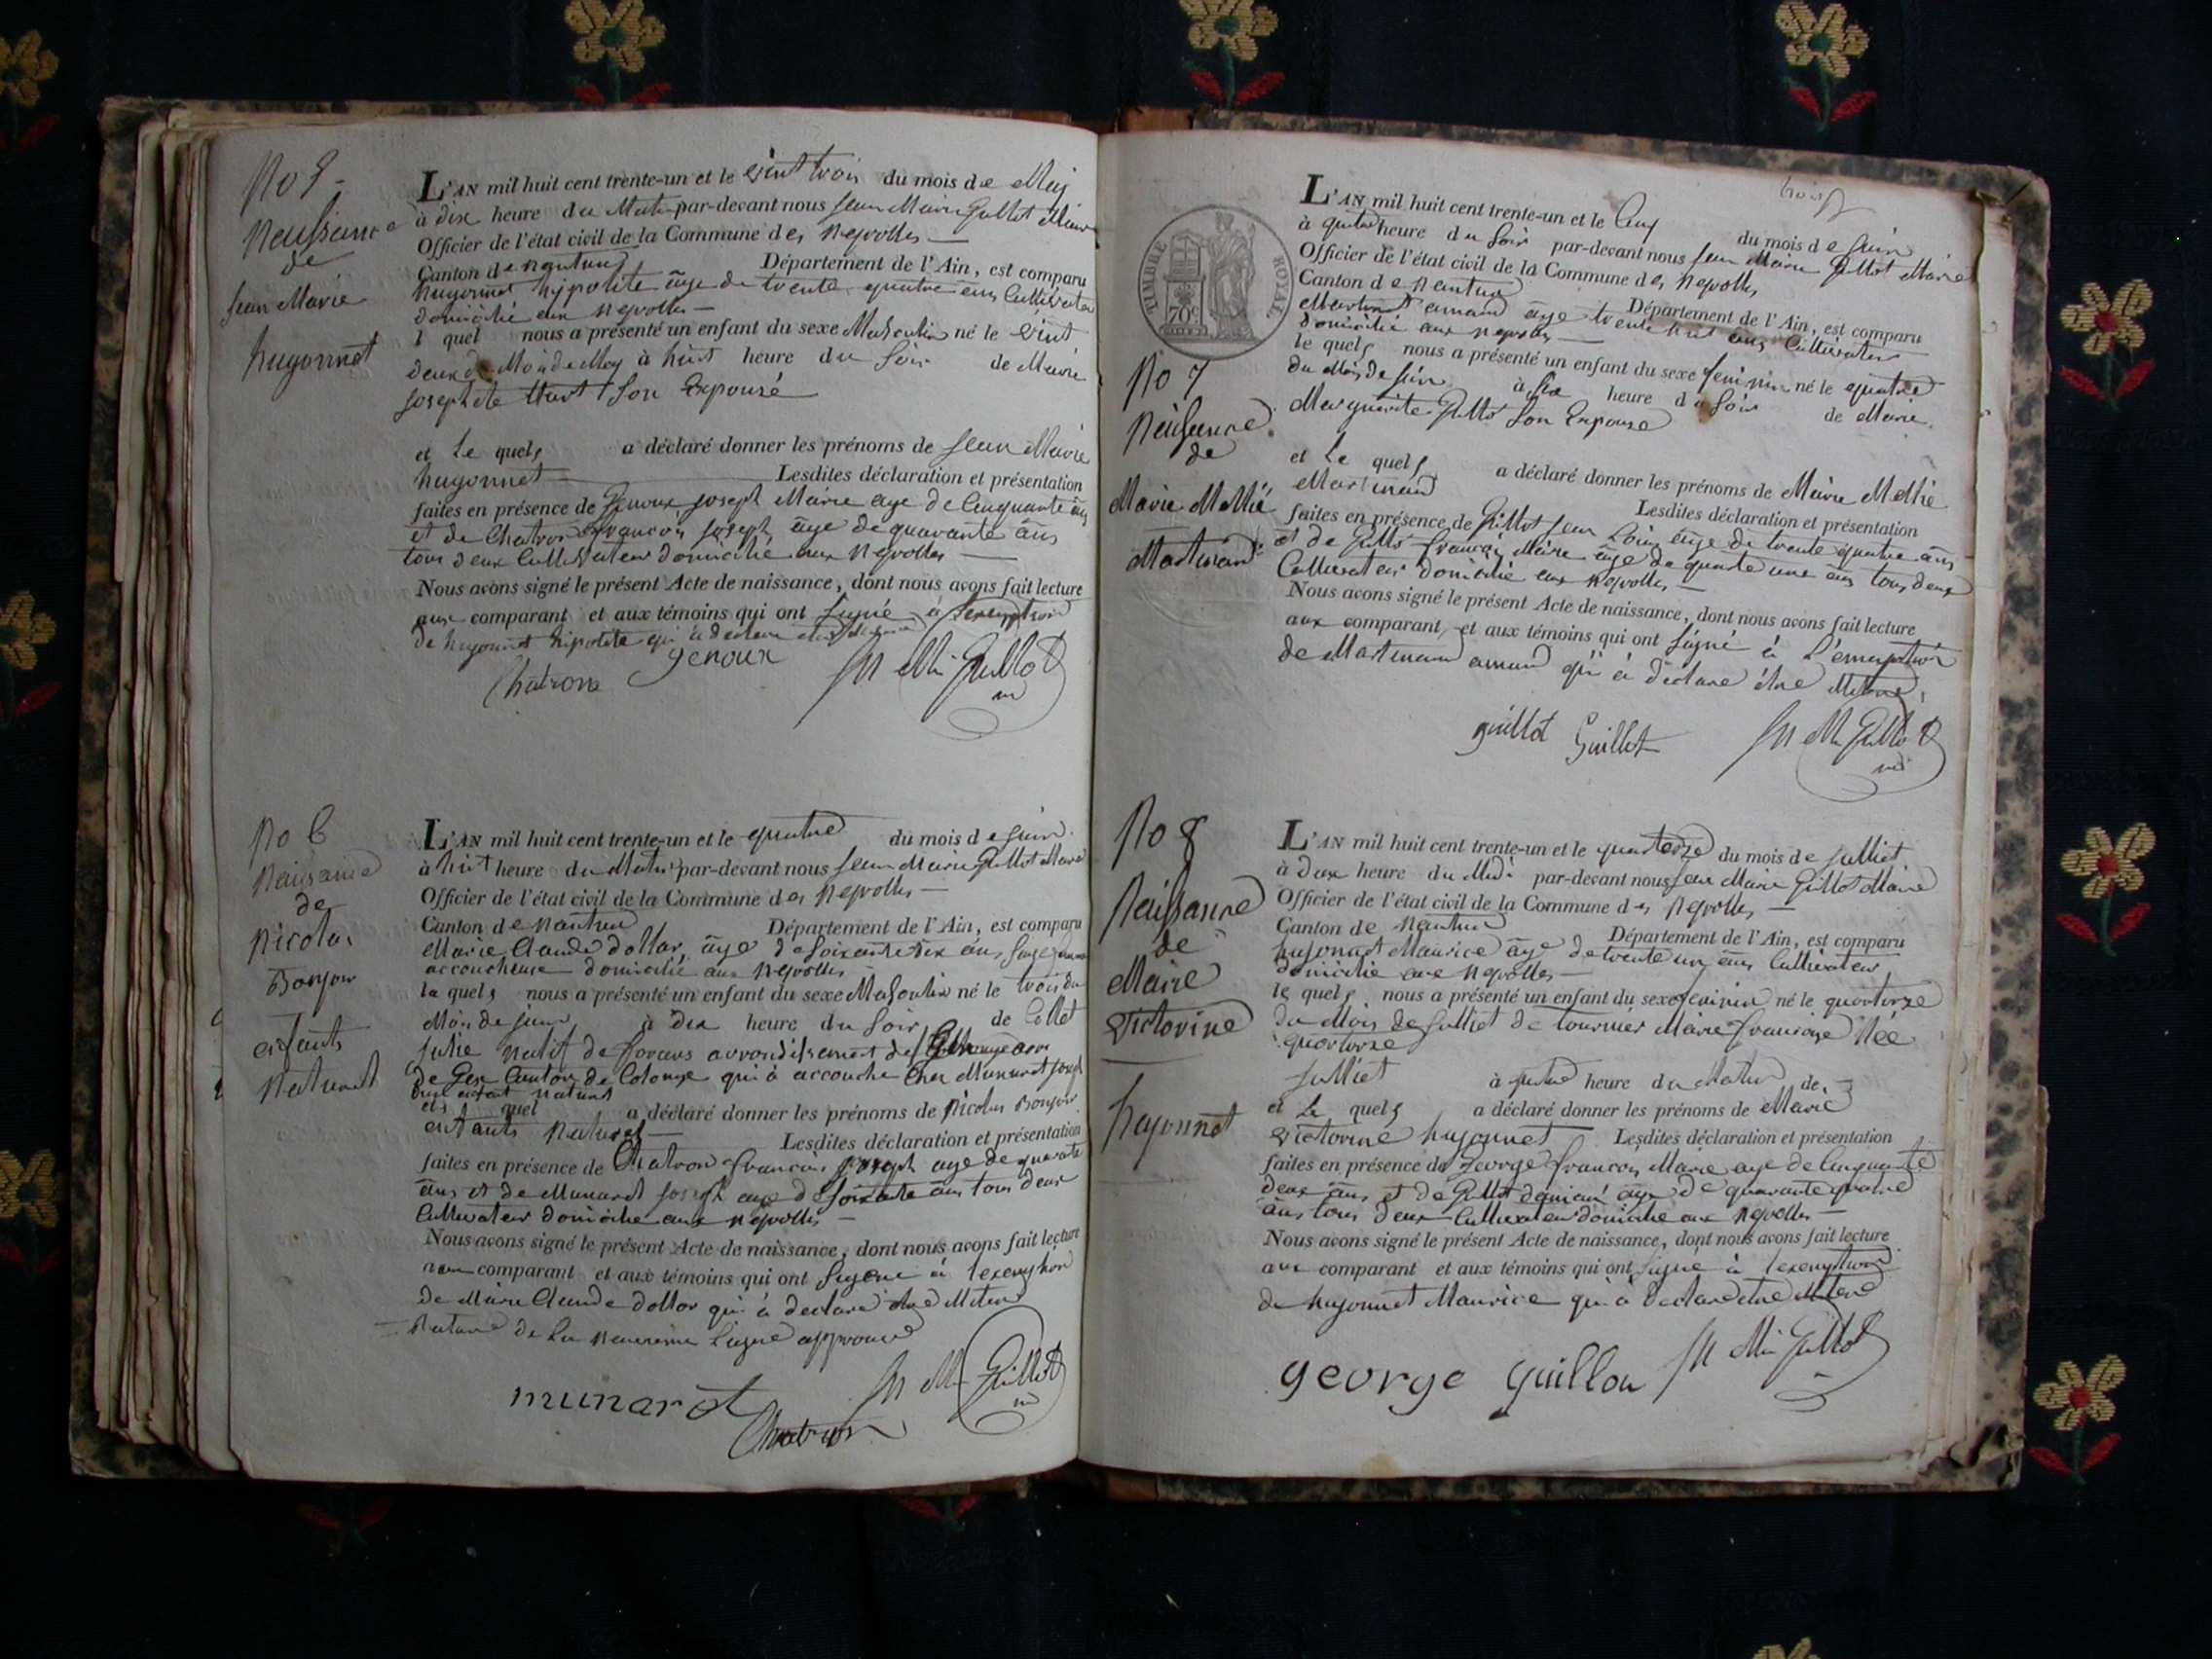 No 5
Naissance
de
Jean Marie
hugonnet
L'AN mil huit cent trente-un et le vint trois du mois de May
à dix heure du Matin par-devant nous Jean Marie Guillot Maire
Officier de l'état civil de la Commune des Neyrolles
Canton de nantua Département de l'Ain, est comparu
hugonnet hypolite âge de trente quatre ans Cultivateur
domicilié aux Neyrolles
l quel nous a présenté un enfant du sexe Masculin né le vint
deux du Mois de May à huit heure du Soir de Marie
josephte Son Expousé
et Le quel a déclaré donner les prénoms de Jean Marie
hugonnet Lesdites déclaration et présentation
faites en présence de Genoux joseph Marie age de Cinquante ans
et de Chatron françois joseph âge de quarante ans
tous deux Cultivateur domicilié aux Neyrolles
Nous avons signé le présent Acte de naissance, dont nous avons fait lecture
aux comparant et aux témoins qui ont Signé à l'exemption
de hugonnet hipolite qui a déclaré
Chatron genoux Jn Mie Guillot
No 6
Naissance
de
Nicolas
Bonjour
enfants
Naturel
L'AN mil huit cent trente-un et le quatre du mois de juin
à huit heure du Matin par-devant nous Jean Marie Guillot Maire
Officier de l'état civil de la Commune des Neyrolles
Canton de Nantua Département de l'Ain, est comparu
Marie Claude dollar, âge de Soixante dix ans, Sage femme
accoucheuse domicilié aux Neyrolles
la quels nous a présenté un enfant du sexe Masculin né le trois du
Mois de juin à dix heure du Soir de Collet
julie natif de forans arrondissement de
de Gex Canton de Colonge qui à accouche Chez Munaret joseph
enfant naturel
et quel a déclaré donner les prénoms de Nicolas Bonjour
enfants Naturel Lesdites déclaration et présentation
faites en présence de Chatron françois joseph age de quarante
ans et de Munaret joseph age de Soixante ans tous deux
Cultivateur domicilie aux Neyrolles
Nous avons signé le présent Acte de naissance, dont nous avons fait lecture
comparant et aux témoins qui ont Signé à l'exemption
de Marie Claude dollar qui à declaré
Rature de La neuvieme Ligne approuvé
munaret
Chatron
Jn Mie Guillot
TIMBRE ROYAL
70c
L'AN mil huit cent trente-un et le Cinq du mois de juin
à quatre heure du Soir par-devant nous Jean Marie Guillot Maire
Officier de l'état civil de la Commune des Neyrolles
Canton de Nantua Département de l'Ain, est comparu
Martinand amand âge trente huit ans Cultivateur
domicilié aux Neyrolles
le quels nous a présenté un enfant du sexe feminin né le quatre
du Mois de juin à Six heure du Soir de Marie
Marguerite Guillot Son Expouse
No 7
Naissance
de
Marie Mathié
Martinand
et Le quels a déclaré donner les prénoms de Marie Mathié
Martinand Lesdites déclaration et présentation
faites en présence de Guillot jean Louis âge de trente quatre ans
et de Guillot françois Marie âge de quarante une ans tous deux
Cultivateur domicilié aux Neyrolles
Nous avons signé le présent Acte de naissance, dont nous avons fait lecture
aux comparant, et aux témoins qui ont Signé à L'exemption
de Martinand amand qui à déclaré être
guillot Guillot Jn Mie Guillot
No 8
Naissance
de
Marie
Victorine
hugonnet
L'AN mil huit cent trente-un et le quatorze du mois de julliet
à deux heure du Midi par-devant nous Jean Marie Guillot Maire
Officier de l'état civil de la Commune des Neyrolles
Canton de Nantua Département de l'Ain, est comparu
hugonnet Maurice âge de trente un ans Cultivateur
domicilié aux Neyrolles
le quels nous a présenté un enfant du sexe feminin né le quatorze
du Mois de julliet de tournier Marie françoise Née
quatorze
julliet à quatre heure du Matin de
et Le quels a déclaré donner les prénoms de Marie
Victorine hugonnet Lesdites déclaration et présentation
faites en présence de George françois Marie age de Cinquante
deux ans et de Guillot âge de quarante quatre
ans tous deux Cultivateur domicilie aux Neyrolles
Nous avons signé le présent Acte de naissance, dont nous avons fait lecture
aux comparant et aux témoins qui ont Signé à l'exemption
de hugonnet Maurice qui à declaré être
george guillou Jn Mie Guillot